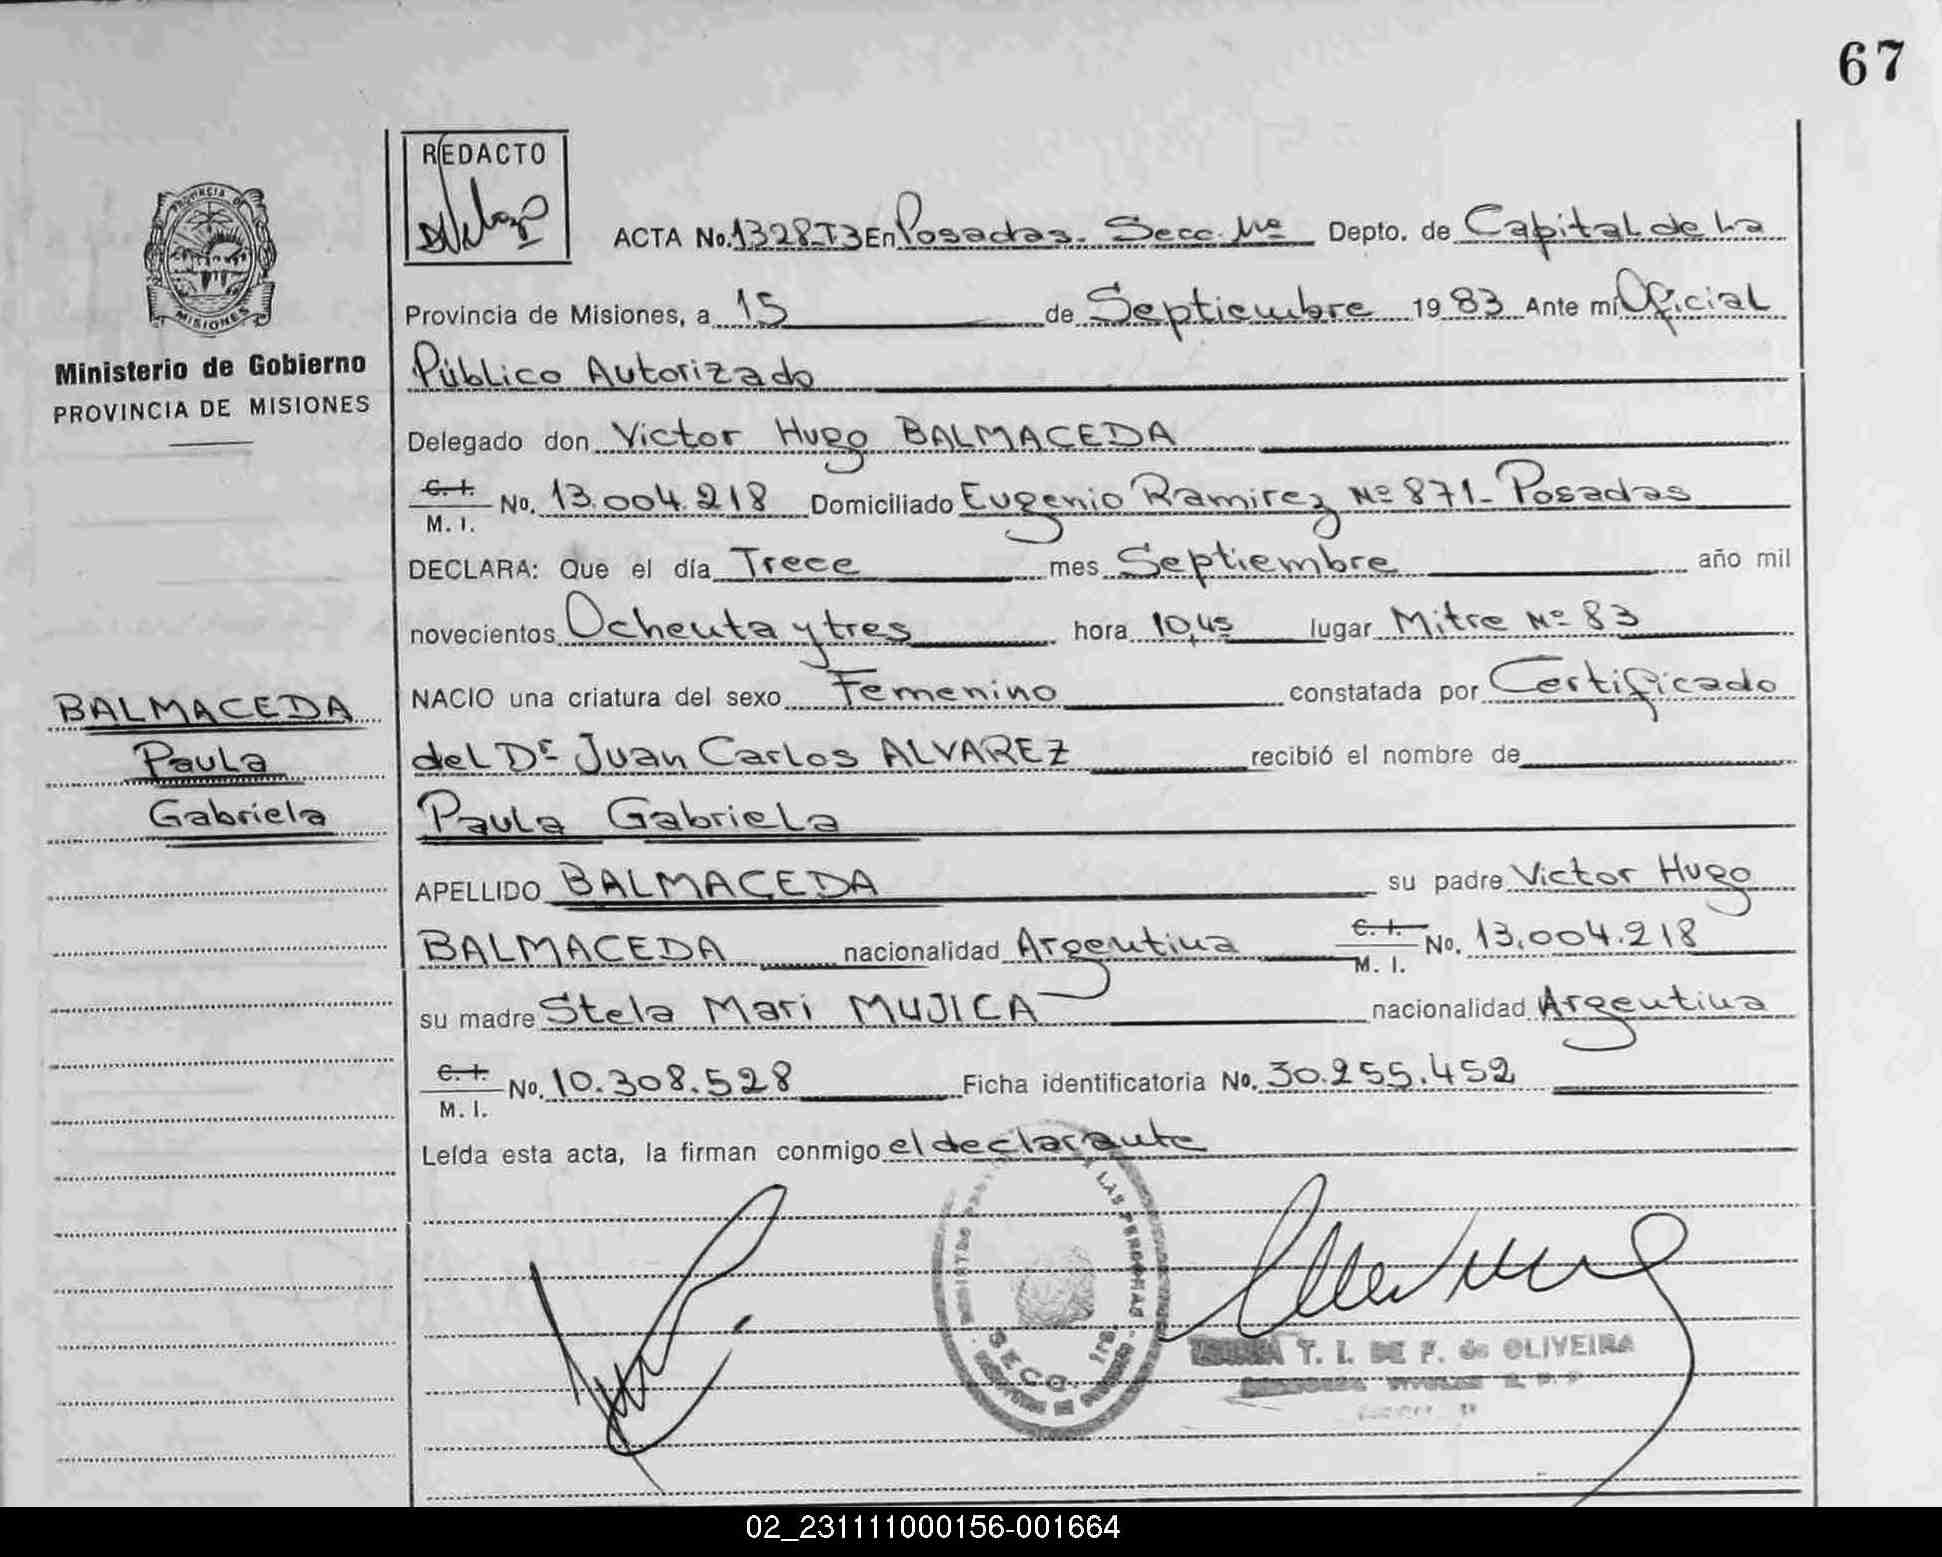 67
REDACTO
PROVINCIA DE
MISIONES
ACTA No. 1328-T3 En Posadas. Secc. 1ra Depto. de Capital de la
Provincia de Misiones, a 15 de Septiembre 1983 Ante mi Oficial
Ministerio de Gobierno
PROVINCIA DE MISIONES
Público Autorizado
Delegado don Victor Hugo BALMACEDA
C. I. M. I. No. 13.004.218 Domiciliado Eugenio Ramirez Nº 871- Posadas
DECLARA: Que el día Trece mes Septiembre año mil
novecientos Ochenta y tres hora 10,45 lugar Mitre Nº 83
NACIO una criatura del sexo Femenino constatada por Certificado
BALMACEDA
Paula
Gabriela
del Dr Juan Carlos ALVAREZ recibió el nombre de
Paula Gabriela
APELLIDO BALMACEDA su padre Victor Hugo
BALMACEDA nacionalidad Argentina C. I. M. I. No. 13.004.218
su madre Stela Mari MUJICA nacionalidad Argentina
C. I. M. I. No. 10.308.528 Ficha identificatoria No. 30.255.452
Leída esta acta, la firman conmigo el declarante
LAS PERSONAS
SECC. 1ra.
T. I. DE F. de OLIVEIRA
02_231111000156-001664